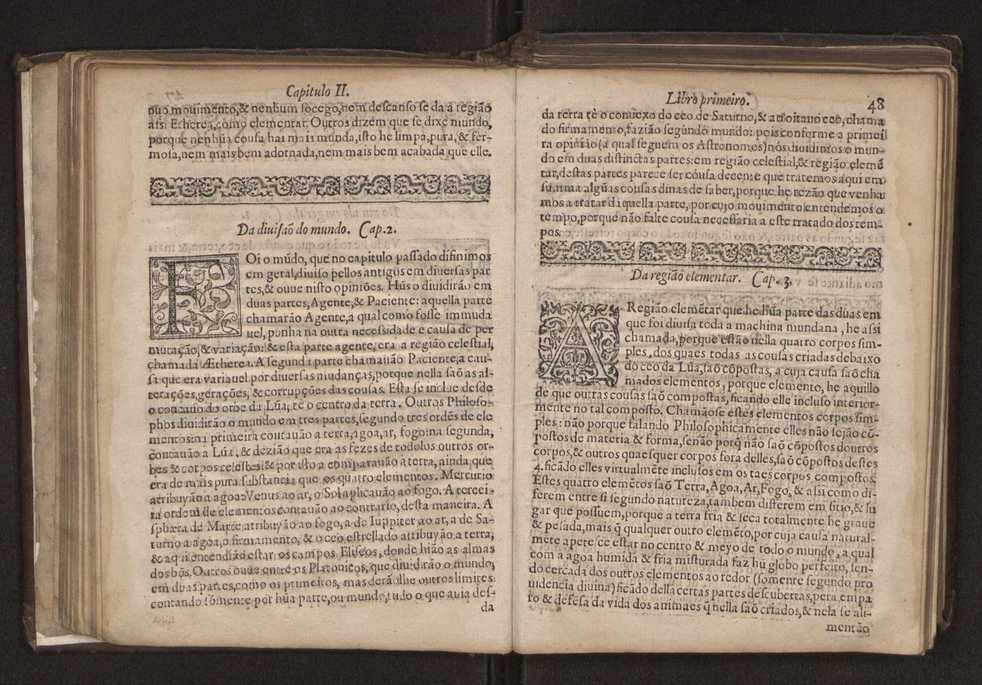 Capitulo II.
nuo mouimento,& nenhum socego,nem descanso se da á região
assi Etherea,como elementar. Outros dizem que se dixe mundo,
porque nenhũa cousa hai mais munda,isto he limpa,pura,& fer-
mosa,nem mais bem adornada,nem mais bem acabada que elle.
Da diuisaõ do mundo. Cap.2.
FOi o mũdo, que no capitulo passado difinimos
em geral,diuiso pellos antigos em diuersas par
tes,& ouue nisto opiniões. Hũs o diuidirão em
duas partes,Agente,& Paciente: aquella parte
chamarão Agente,a qual como fosse immuda
uel, punha na outra necessidade e causa de per
mutação,& variação: & esta parte agente, era a região celestial,
chamada Ætherea.A segunda parte chamauão Paciente,a cau-
sa que era variauel por diuersas mudanças,porque nella saõ as al-
terações,gerações, & corrupções das cousas. Esta se inclue desde
o concauo do orbe da Lũa, tè o centro da terra. Outros Philoso-
phos diuidirão o mundo em tres partes,segundo tres ordẽs de ele
mentos:na primeira contauão a terra,agoa,ar, fogo:na segunda,
contauão a Lũa, & dezião que era as fezes de todolos outros or-
bes & corpos celestes:& por isto a comparauão a terra, ainda que
era de mais pura substancia que os quatro elementos. Mercurio
atribuyão a agoa:Venus ao ar, o Sol aplicauão ao fogo. A tercei-
ra ordem de elementos contauão ao contrario, desta maneira. A
sphæra de Marte atribuyão ao fogo, a de Iuppiter ao ar, a de Sa-
turno a agoa,o firmamento, & o ceo estrellado attribuyão a terra;
& aqui entendião estar os campos Eliseos, donde hião as almas
dos bõs.Outros ouue entre os Platonicos, que diuidirão o mundo,
em duas partes,como os primeiros, mas derãolhe outros limites:
contando somente por hũa parte,ou mundo,tudo o que auia des-
da
Libro primeiro. 48
da terra tè o conuexo do ceo de Saturno, & ao oitauo ceo, chama
do firmamento, fazião segundo mundo: pois conforme a primei-
ra opinião (a qual seguem os Astronomos) nòs diuidimos o mun-
do em duas distinctas partes: em região celestial,& região elemẽ
tar,destas partes parece ser cousa decente que tratemos aqui em
summa algũas cousas dinas de saber,porque he rezão que venha
mos a tratar daquella parte, por cujo mouimento entendemos o
tempo,porque não falte cousa necessaria a este tratado dos tem-
pos.
Da região elementar. Cap. 3.
A Região elemẽtar que he hũa parte das duas em
que foi diuisa toda a machina mundana, he assi
chamada,porque estão nella quatro corpos sim-
ples, dos quaes todas as cousas criadas debaixo
do ceo da Lũa,saõ cõpostas, a cuja causa saõ cha
mados elementos, porque elemento, he aquillo
de que outras cousas saõ compostas, ficando elle incluso interior-
mente no tal composto. Chamãose estes elementos corpos sim-
ples: não porque falando Philosophicamente elles não sejão cõ-
postos de materia & forma,senão porq̃ não saõ cõpostos doutros
corpos,& outros quaesquer corpos fora delles,saõ cõpostos destes
4.ficãdo elles virtualmẽte inclusos em os taes corpos compostos.
Estes quatro elemẽtos saõ Terra,Agoa,Ar,Fogo, & assi como di-
ferem entre si segundo natureza,tambem differem em sitio,& lu
gar que possuem,porque a terra fria & seca totalmente he graue
& pesada,mais q̃ qualquer outro elemẽto,por cuja causa natural-
mẽte apetece estar no centro & meyo de todo o mundo, a qual
com a agoa humida & fria misturada faz hũ globo perfeito, sen-
do cercada dos outros elementos ao redor (somente segundo pro
uidencia diuina) ficãdo della certas partes descubertas,pera empa
ro & defesa da vida dos animaes q̃ nella saõ criados,& nela se ali-
mentão